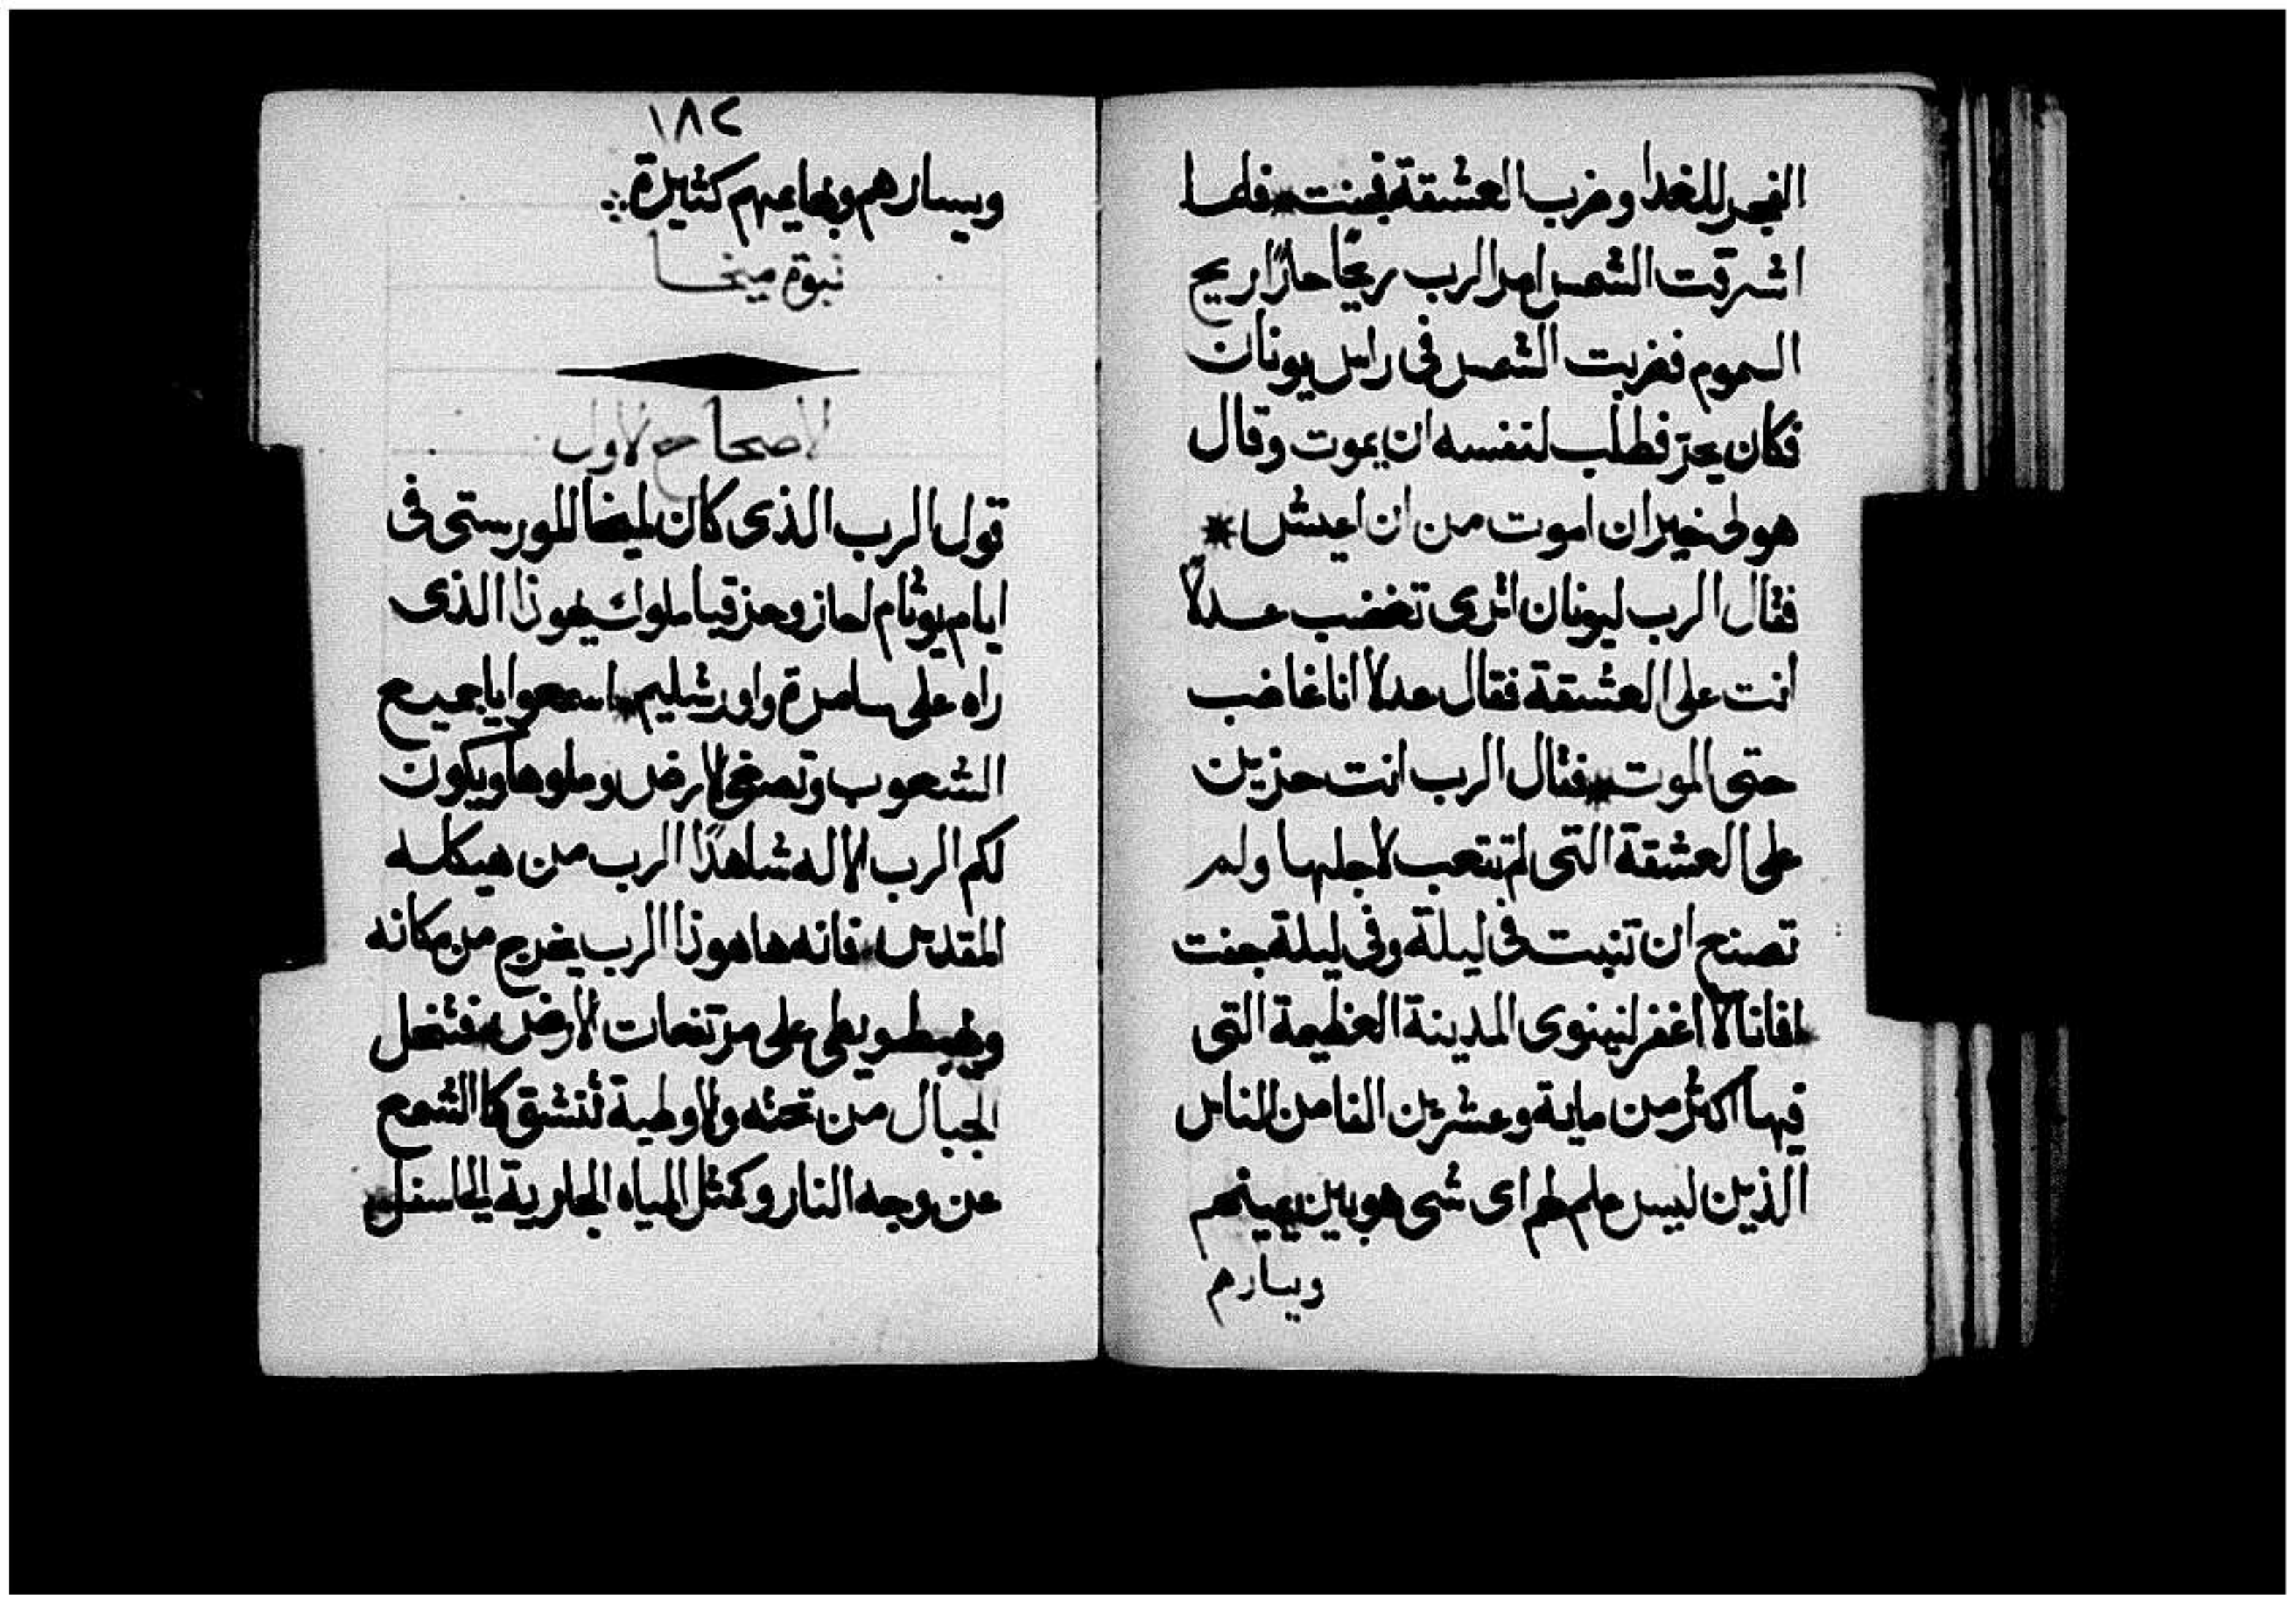 الفجر للغدا وضرب العشقة فجفت * فلما
اشرقت الشمس امر الرب ريحًا حارًا ريح
السموم فضربت الشمس في راس يونان
فكان يحرّ فطلب لنفسه ان يموت وقال
هو لي خير ان اموت من ان اعيش *
فقال الرب ليونان اترى تغضب عدلًا
انت على العشقة فقال عدلا انا غاضب
حتى الموت * فقال الرب انت حزين
على العشقة التي لم تتعب لاجلها ولم
تصنع ان تنبت في ليلة وفي ليلة جفت
* افانا لا اغفر لنينوى المدينة العظيمة التي
فيها اكثر من ماية وعشرين الفا من الناس
الذين ليس علم لهم اي شي هو بين يمينهم
ويسارهم
١٨٢
ويسارهم وبهايمهم كثيرة
نبوة ميخا
الاصحاح الاول
قول الرب الذي كان لميخا المورستي في
ايام يوثام احاز وحزقيا ملوك يهوذا الذي
راه على سامرة واورشليم * اسمعوا ياجميع
الشعوب وتصغي الارض وملوها ويكون
لكم الرب الاله شاهدًا الرب من هيكله
المقدس * فانه ها هوذا الرب يخرج من مكانه
ويهبط ويطي على مرتفعات الارض * فتضحل
الجبال من تحته والاوطية تنشق كالشمع
عن وجه النار وكمثل المياه الجارية الى اسفل *